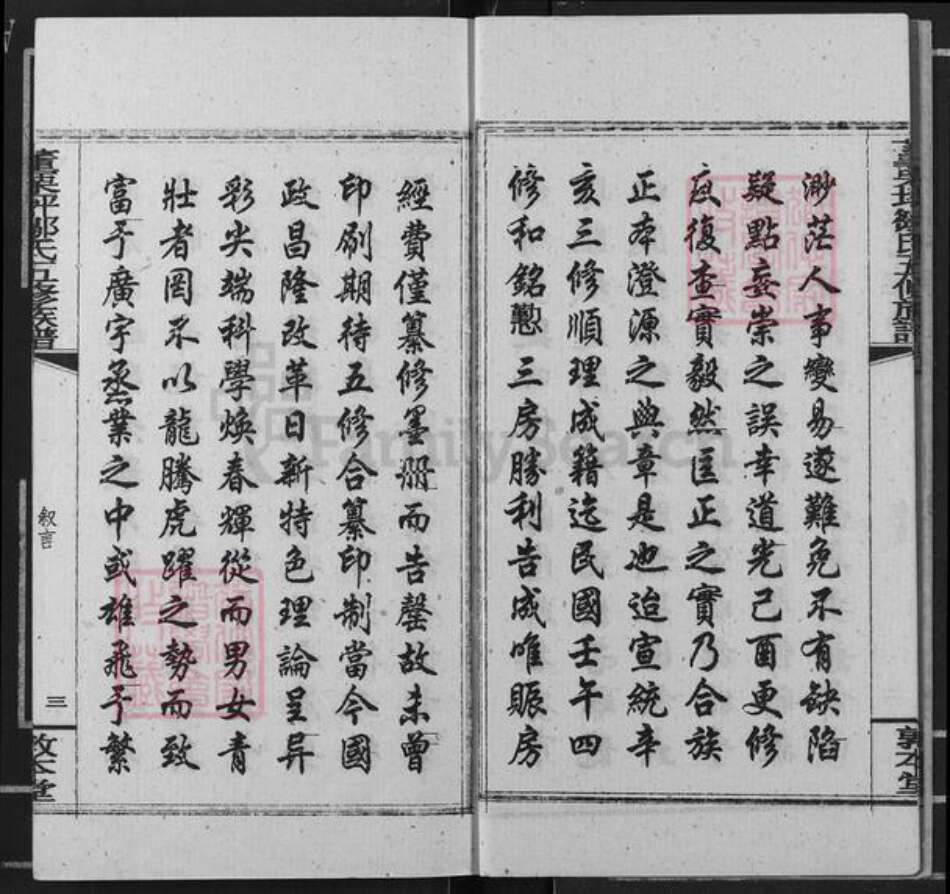 渺茫人事變易遂難免不有缺陷
疑點妄崇之誤幸道光己酉更修
反復查實毅然匡正之實乃合族
正本澄源之典章是也迨宣統辛
亥三修順理成籍迄民國壬午四
修和銘懃三房勝利告成唯賑房
經費僅纂修墨冊而告罄故未曾
印刷期待五修合纂印制當今國
政昌隆改革日新特色理論呈异
彩尖端科學煥春輝從而男女青
壯者罔不以龍騰虎躍之勢而致
富于廣宇烝業之中或雄飛于繁
叙言
三
FamilySearch